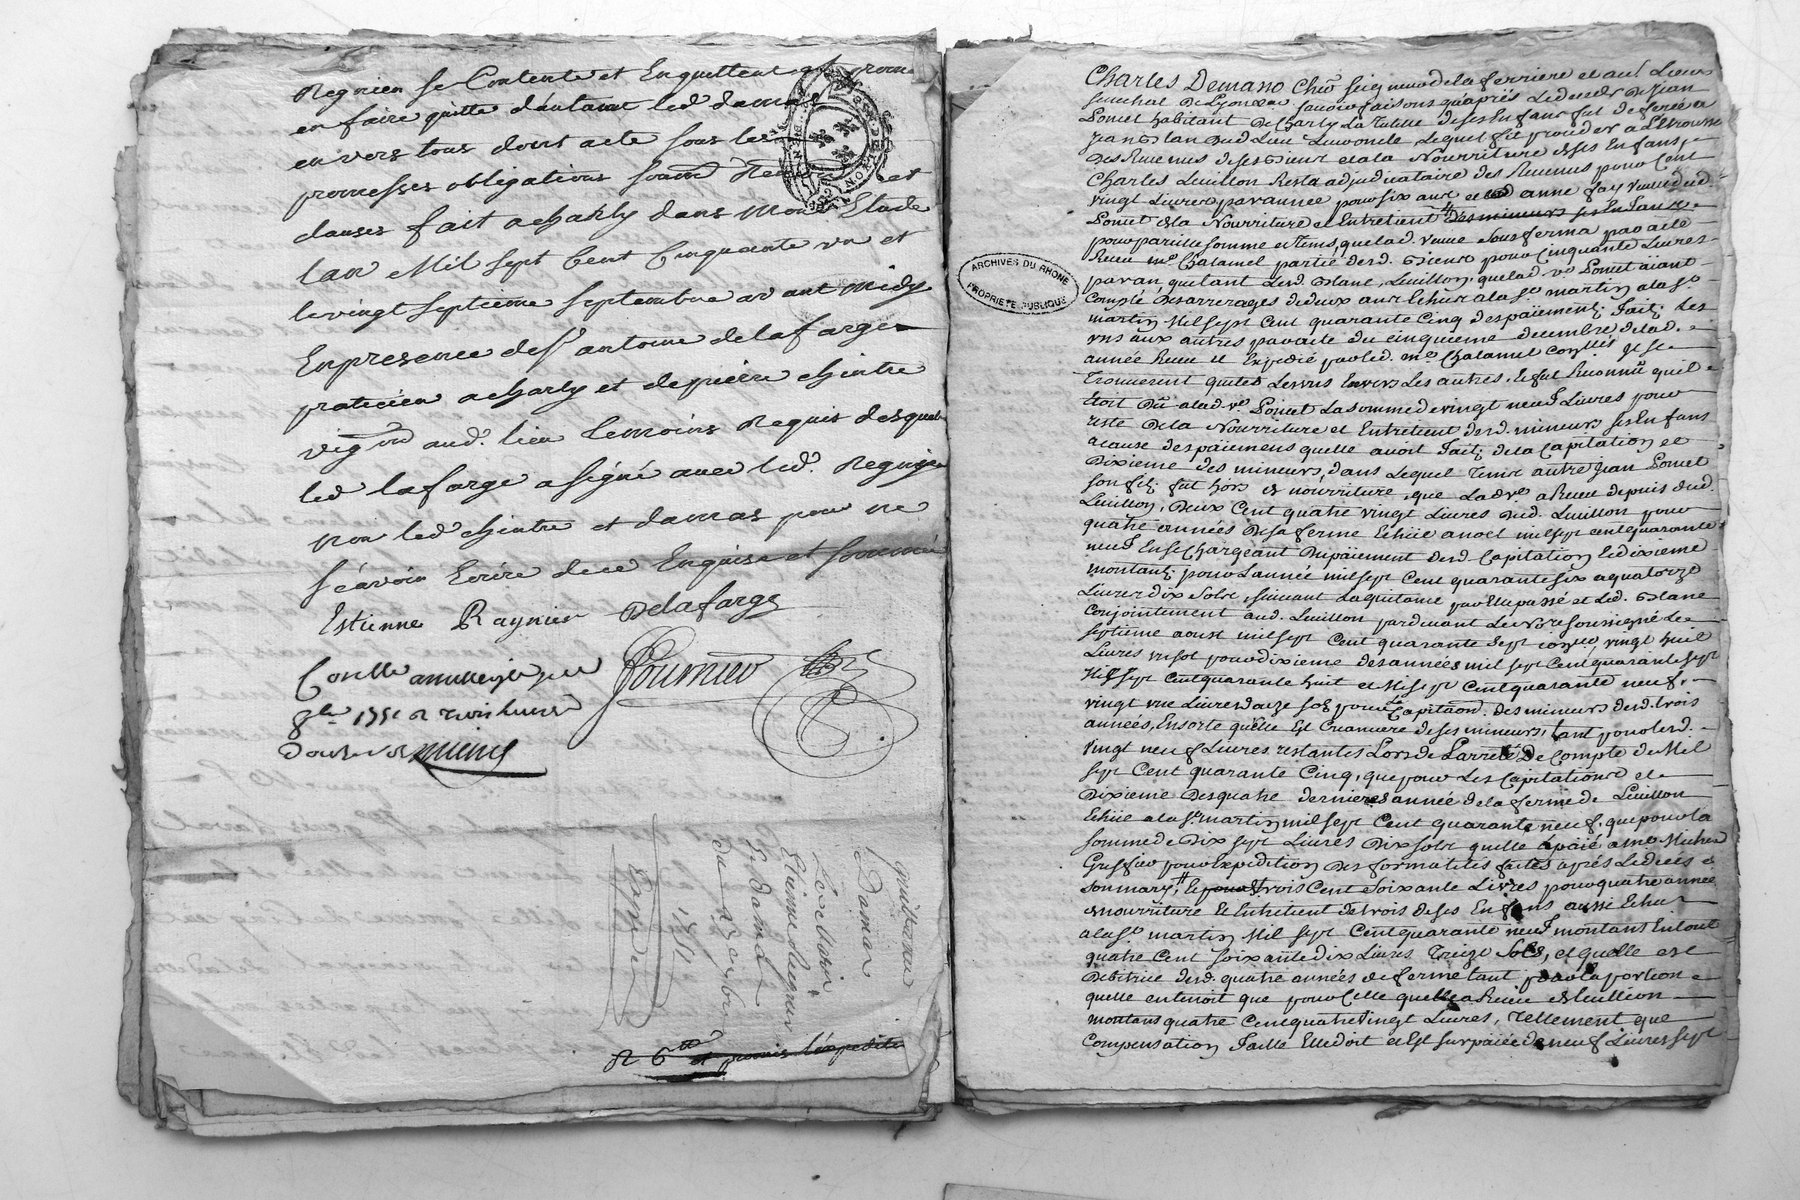 Regnier se Contente et Enquitte et promet
en faire quitte d'autant led damas
envers tous dont acte sous les
promesses obligations soumō Renō et
clauses fait a charly dans mon Etude
lan Mil sept Cent Cinquante un et
le vingt septieme septembre avant midy
En presence de sr antoine delafarge
praticien a charly et de pierre chintre
vigron aud. lieu temoins Requis desquels
led lafarge a signé avec led. Regnier
non led chintre et damas pour ne
sçavoir Ecrire de ce Enquis et sommé
Estienne Raynier Delafarge
Fournier
8bre 1751 R
quittance
Damas
Etienne Regnier
1751
Expediée
R 6 et promis l'expeditⁿ
ARCHIVES DU RHONE
PROPRIÉTÉ PUBLIQUE
Charles Demaso Cher seigneur de la ferriere et au.
senechal De Lyon scavoir faisons qu'apres Le deceds De Jean
Poncet habitant De charly La Tutelle de ses Enfans fut deferée a
Des Revenus de ses et a la Nourriture de ses Enfans
Charles Luillon Resta adjudicataire des Revenus pour Cent
vingt Livres par année pour six ans
Poncet de la Nourriture et Entretient Des mineurs ses Enfans
pour pareille somme et tems, que lad. veuve sousferma par acte
Receu me Chalamel partie desd. pour cinquante Livres
par an que tant Lesd. Blanc, Luillon, que lad. ve Poncet aïant
Compté Des arrerages de deux ans Echus a la st martin
martin Mil sept Cent quarante Cinq des païements faits Les
uns aux autres par acte du cinquieme decembre de lad.
année Receu et Expedié par led. me Chalamel
Trouverent quites Les uns Envers Les autres, et fut Reconnu quil
Etoit Dû a lad. ve Poncet La somme de vingt neuf Livres pour
reste De la Nourriture et Entretient desd. mineurs ses Enfans
a cause des païemens quelle avoit faits de la Capitation et
Dixieme des mineurs, dans Lequel tems autre jean Poncet
son fils fut hors de nourriture, que Lad. ve a Receu depuis dud.
Luillon, Deux Cent quatre vingt Livres Dud. Luillon pour
quatre années De sa ferme Echüe a noel mil sept cent quarante
neuf En se Chargeant Du païement desd. Capitation et dixieme
montants pour Lannée mil sept Cent quarante six a quatorze
Livres dix sols, suivant La quitance par Elle passé et Led. Blanc
Conjointement aud. Luillon pardevant Le No.re soussigné Le
septieme aoust mil sept Cent quarante sept vingt huit
Livres un sol pour dixieme des années mil sept Cent quarante sept
Mil sept Cent quarante huit et Mil sept Cent quarante neuf,
vingt une Livres douze sols pour La Capitaon. des mineurs desd. trois
années, Ensorte quelle Est Creanciere de ses mineurs, tant pour lesd.
vingt neuf Livres restantes Lors de Larreté De Compte de Mil
sept Cent quarante Cinq, que pour Les Capitations et
Dixieme Des quatre dernieres année de la ferme de Luillon
Echüe a la st martin mil sept Cent quarante neuf, que pour la
somme de Dix sept Livres Dix sols quelle a païé a me Michon
Greffier pour Expedition Des formalités faites aprés Le decés de
son mary, Et trois Cent soixante Livres pour quatre année
de nourriture et Entretient de trois de ses Enfans aussi Echus
a la st martin Mil sept Cent quarante neuf montans En tout
quatre Cent soixante dix Livres Treize sols, et quelle est
Debitrice desd. quatre années de ferme tant pour la portion
quelle en tenoit que pour Celle quelle a Receu de Luillon
montans quatre Cent quatre vingt Livres, Tellement que
Compensation faitte Elle doit et Est surpaïée de neuf Livres sept